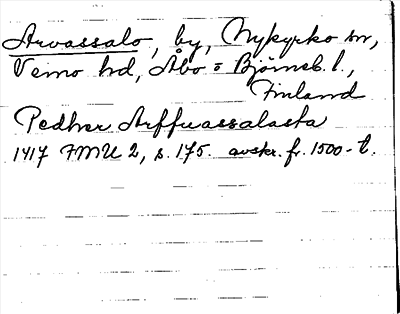 Arvassalo, by, Nykyrko sn,
Vemo hd, Åbo = Björneb. l.,
Finland
Pedher Arffuassalasta
1417 FMU 2, s. 175. avskr. fr. 1500-t.